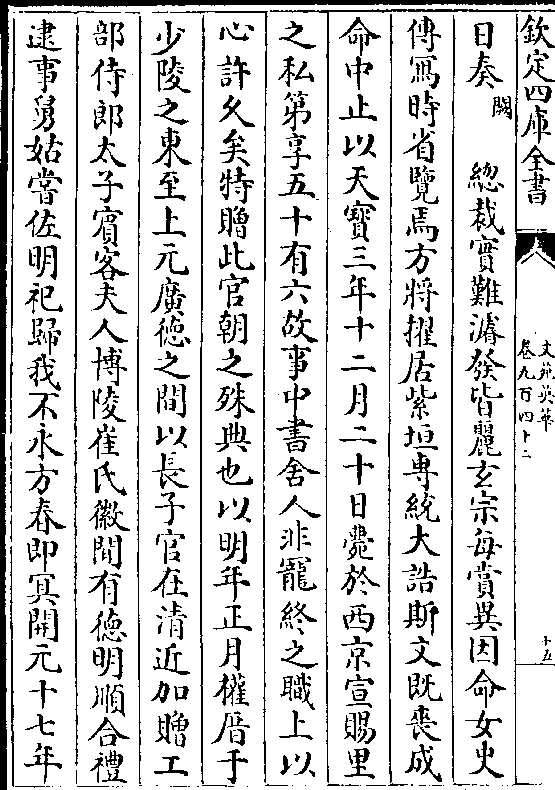 欽定四庫全書
文苑英華
卷九百四十二
十五
日奏闕總裁實難濬發皆麗玄宗每賞異因命女史
傳寫時省覽焉方將擢居紫垣專統大誥斯文既喪成
命中止以天寶三年十二月二十日薨於西京宣賜里
之私第享五十有六故事中書舍人非寵終之職上以
心許久矣特贈此官朝之殊典也以明年正月權厝于
少陵之東至上元廣德之間以長子官在清近加贈工
部侍郎太子賓客夫人博陵崔氏徽聞有德明順合禮
逮事舅姑嘗佐明祀歸我不永方春即冥開元十七年